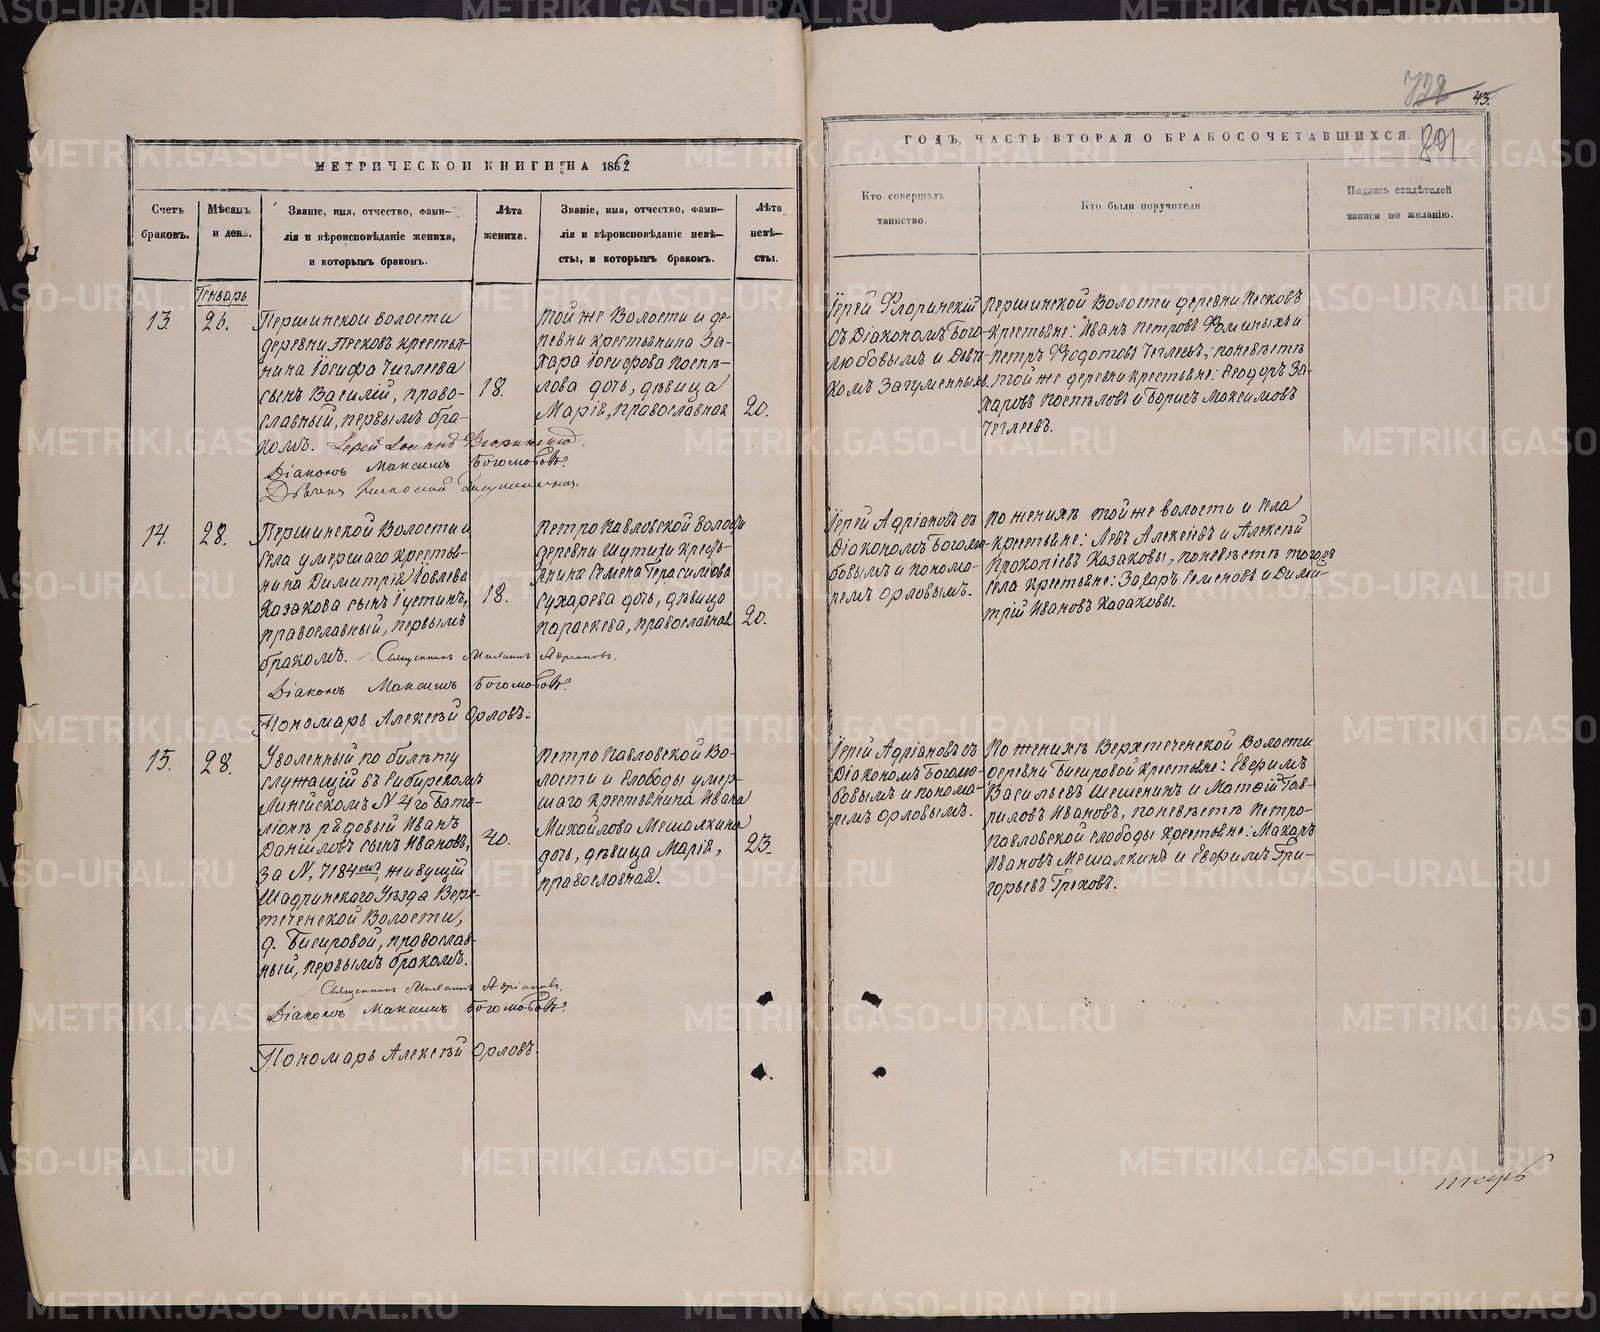 МЕТРИЧЕСКОЙ КНИГИ НА 1862
Счетъ браковъ.
Мѣсяцъ и день.
Званіе, имя, отчество, фами-
лія и вѣроисповѣданіе жениха,
и которымъ бракомъ.
Лѣта жениха.
Званіе, имя, отчество, фами-
лія и вѣроисповѣданіе невѣ-
сты, и которымъ бракомъ.
Лѣта невѣ-
сты.
Генварь
13.
26.
Першинской волости
деревни Песковъ крестья-
нина Іосифа Чеглеева
сынъ Василій, право-
славный, первымъ бра-
комъ. Іерей Іоаннъ Флоринскій.
Діаконъ Максимъ Боголюбовъ.
18.
Той же Волости и де-
ревни крестьянина За-
хара Іосифова Поспѣ-
лова дочь, дѣвица
Марія, православная
20.
14.
28.
Першинской Волости и
села умершаго крестья-
нина Димитрія Іовлева
Казакова сынъ Іустинъ,
православный, первымъ
бракомъ. Священникъ Михаилъ Адріановъ.
Діаконъ Максимъ Боголюбовъ.
Пономарь Алексѣй Орловъ.
18.
Петро Павловской волости
деревни Шутихи кресть-
янина Семена Герасимова
Сухарева дочь, дѣвица
Параскева, православная
20.
15.
28.
Уволенный по билету
служащій въ Сибирскомъ
Линейскомъ N 4го Бата-
ліонѣ рядовый Иванъ
Даниловъ сынъ Ивановъ,
за N, 7184мъ, живущій
Шадринскаго Уѣзда Верх-
теченской Волости,
д. Бисеровой, православ-
ный, первымъ бракомъ.
Священникъ Михаилъ Адріановъ.
Діаконъ Максимъ Боголюбовъ.
Пономарь Алексѣй Орловъ.
40.
Петро Павловской Во-
лости и Слободы умер-
шаго крестьянина Ивана
Михайлова Мешалкина
дочь, дѣвица Марія,
православная.
23.
43.
ГОДЪ, ЧАСТЬ ВТОРАЯ О БРАКОСОЧЕТАВШИХСЯ.
Кто совершалъ
таинство.
Кто были поручители.
Подпись свидѣтелей
записи по желанію.
Іерей Флоринскій
съ Діакономъ Бого-
любовымъ и Дьяч-
комъ Загуменныхъ.
Першинской Волости деревни Песковъ
крестьяне: Иванъ Петровъ Фоминыхъ и
Петръ Ѳедотовъ Чеглеевъ, по невѣстѣ
той же деревни крестьяне: Ѳеодоръ За-
харовъ Поспѣловъ и Борисъ Максимовъ
Чеглеевъ.
Іерей Адріановъ съ
Діакономъ Боголю-
бовымъ и понома-
ремъ Орловымъ.
По женихѣ той же волости и села
крестьяне: Левъ Алексѣевъ и Алексѣй
Прокопіевъ Казаковы, по невѣстѣ того же
села крестьяне: Захаръ Семеновъ и Дими-
трій Ивановъ Казаковы.
Іерей Адріановъ съ
Діакономъ Боголю-
бовымъ и понома-
ремъ Орловымъ.
По женихѣ Верхтеченской Волости
деревни Бисеровой крестьяне: Евфимъ
Васильевъ Шешенинъ и Матѳій Гав-
риловъ Ивановъ, по невѣстѣ Петро-
павловской слободы крестьяне: Макаръ
Ивановъ Мешалкинъ и Евфимъ Гри-
горьевъ Грѣховъ.
METRIKI.GASO-URAL.RU